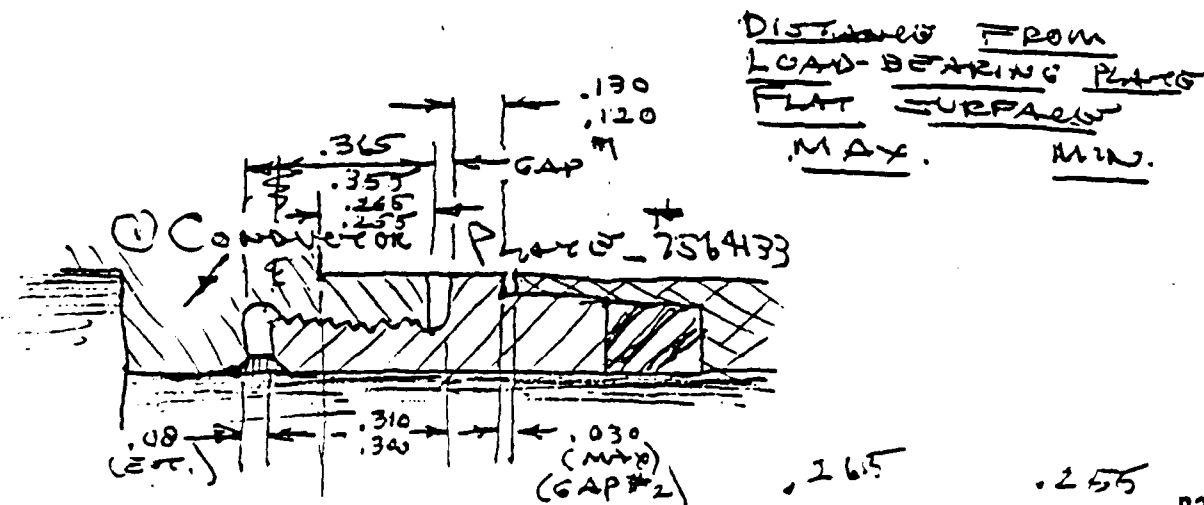 DISTANCE FROM
LOAD-BEARING PLATE
FLAT SURFACE
MAX. MIN.
.130
.120
GAP
.365
.355
.265
.255
① CONDUCTOR PLATE - 7564133
.08
(EST.)
.310
.300
.030
(MAX)
(GAP #2)
.265 .255